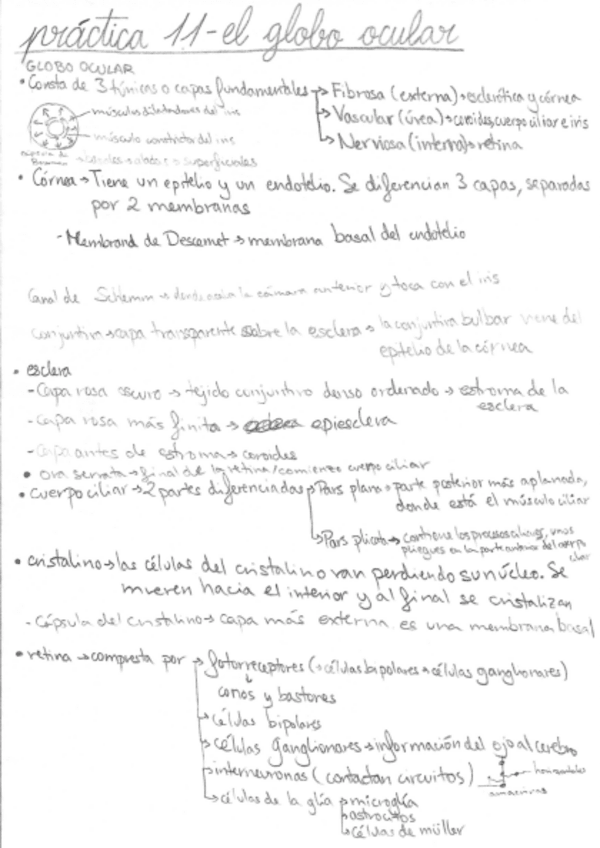 práctica 11-el globo ocular
GLOBO OCULAR
• Consta de 3 túnicas o capas fundamentales → Fibrosa (externa) → esclerótica y córnea
→ Vascular (úvea) → coroides, cuerpo ciliar e iris
→ Nerviosa (interna) → retina
músculos dilatadores del iris
músculo constrictor del iris
superficiales
• Córnea → Tiene un epitelio y un endotelio. Se diferencian 3 capas, separadas
por 2 membranas
- Membrand de Descemet → membrana basal del endotelio
Canal de Schlemm → la cámara anterior y toca con el iris
conjuntiva → capa transparente sobre la esclera → la conjuntiva bulbar viene del
epitelio de la córnea
• esclera
- Capa rosa oscuro → tejido conjuntivo denso ordenado → estroma de la
esclera
- Capa rosa más finita → epiesclera
- Capa antes de estroma → coroides
• ora serrata → final de la retina/comienzo cuerpo ciliar
• cuerpo ciliar → 2 partes diferenciadas → Pars plana → parte posterior más aplanada,
donde está el músculo ciliar
→ Pars plicata → contiene los procesos ciliares, unos
pliegues en la parte anterior del cuerpo
ciliar
• cristalino → las células del cristalino van perdiendo su núcleo. Se
mueren hacia el interior y al final se cristalizan
- Cápsula del cristalino → capa más externa, es una membrana basal
• retina → compuesta por → fotorreceptores (→ células bipolares → células ganglionares)
conos y bastones
→ células bipolares
→ células ganglionares → información del ojo al cerebro
→ interneuronas (contactan circuitos)
horizontales
amacrinas
→ células de la glía → microglía
→ astrocitos
→ células de müller